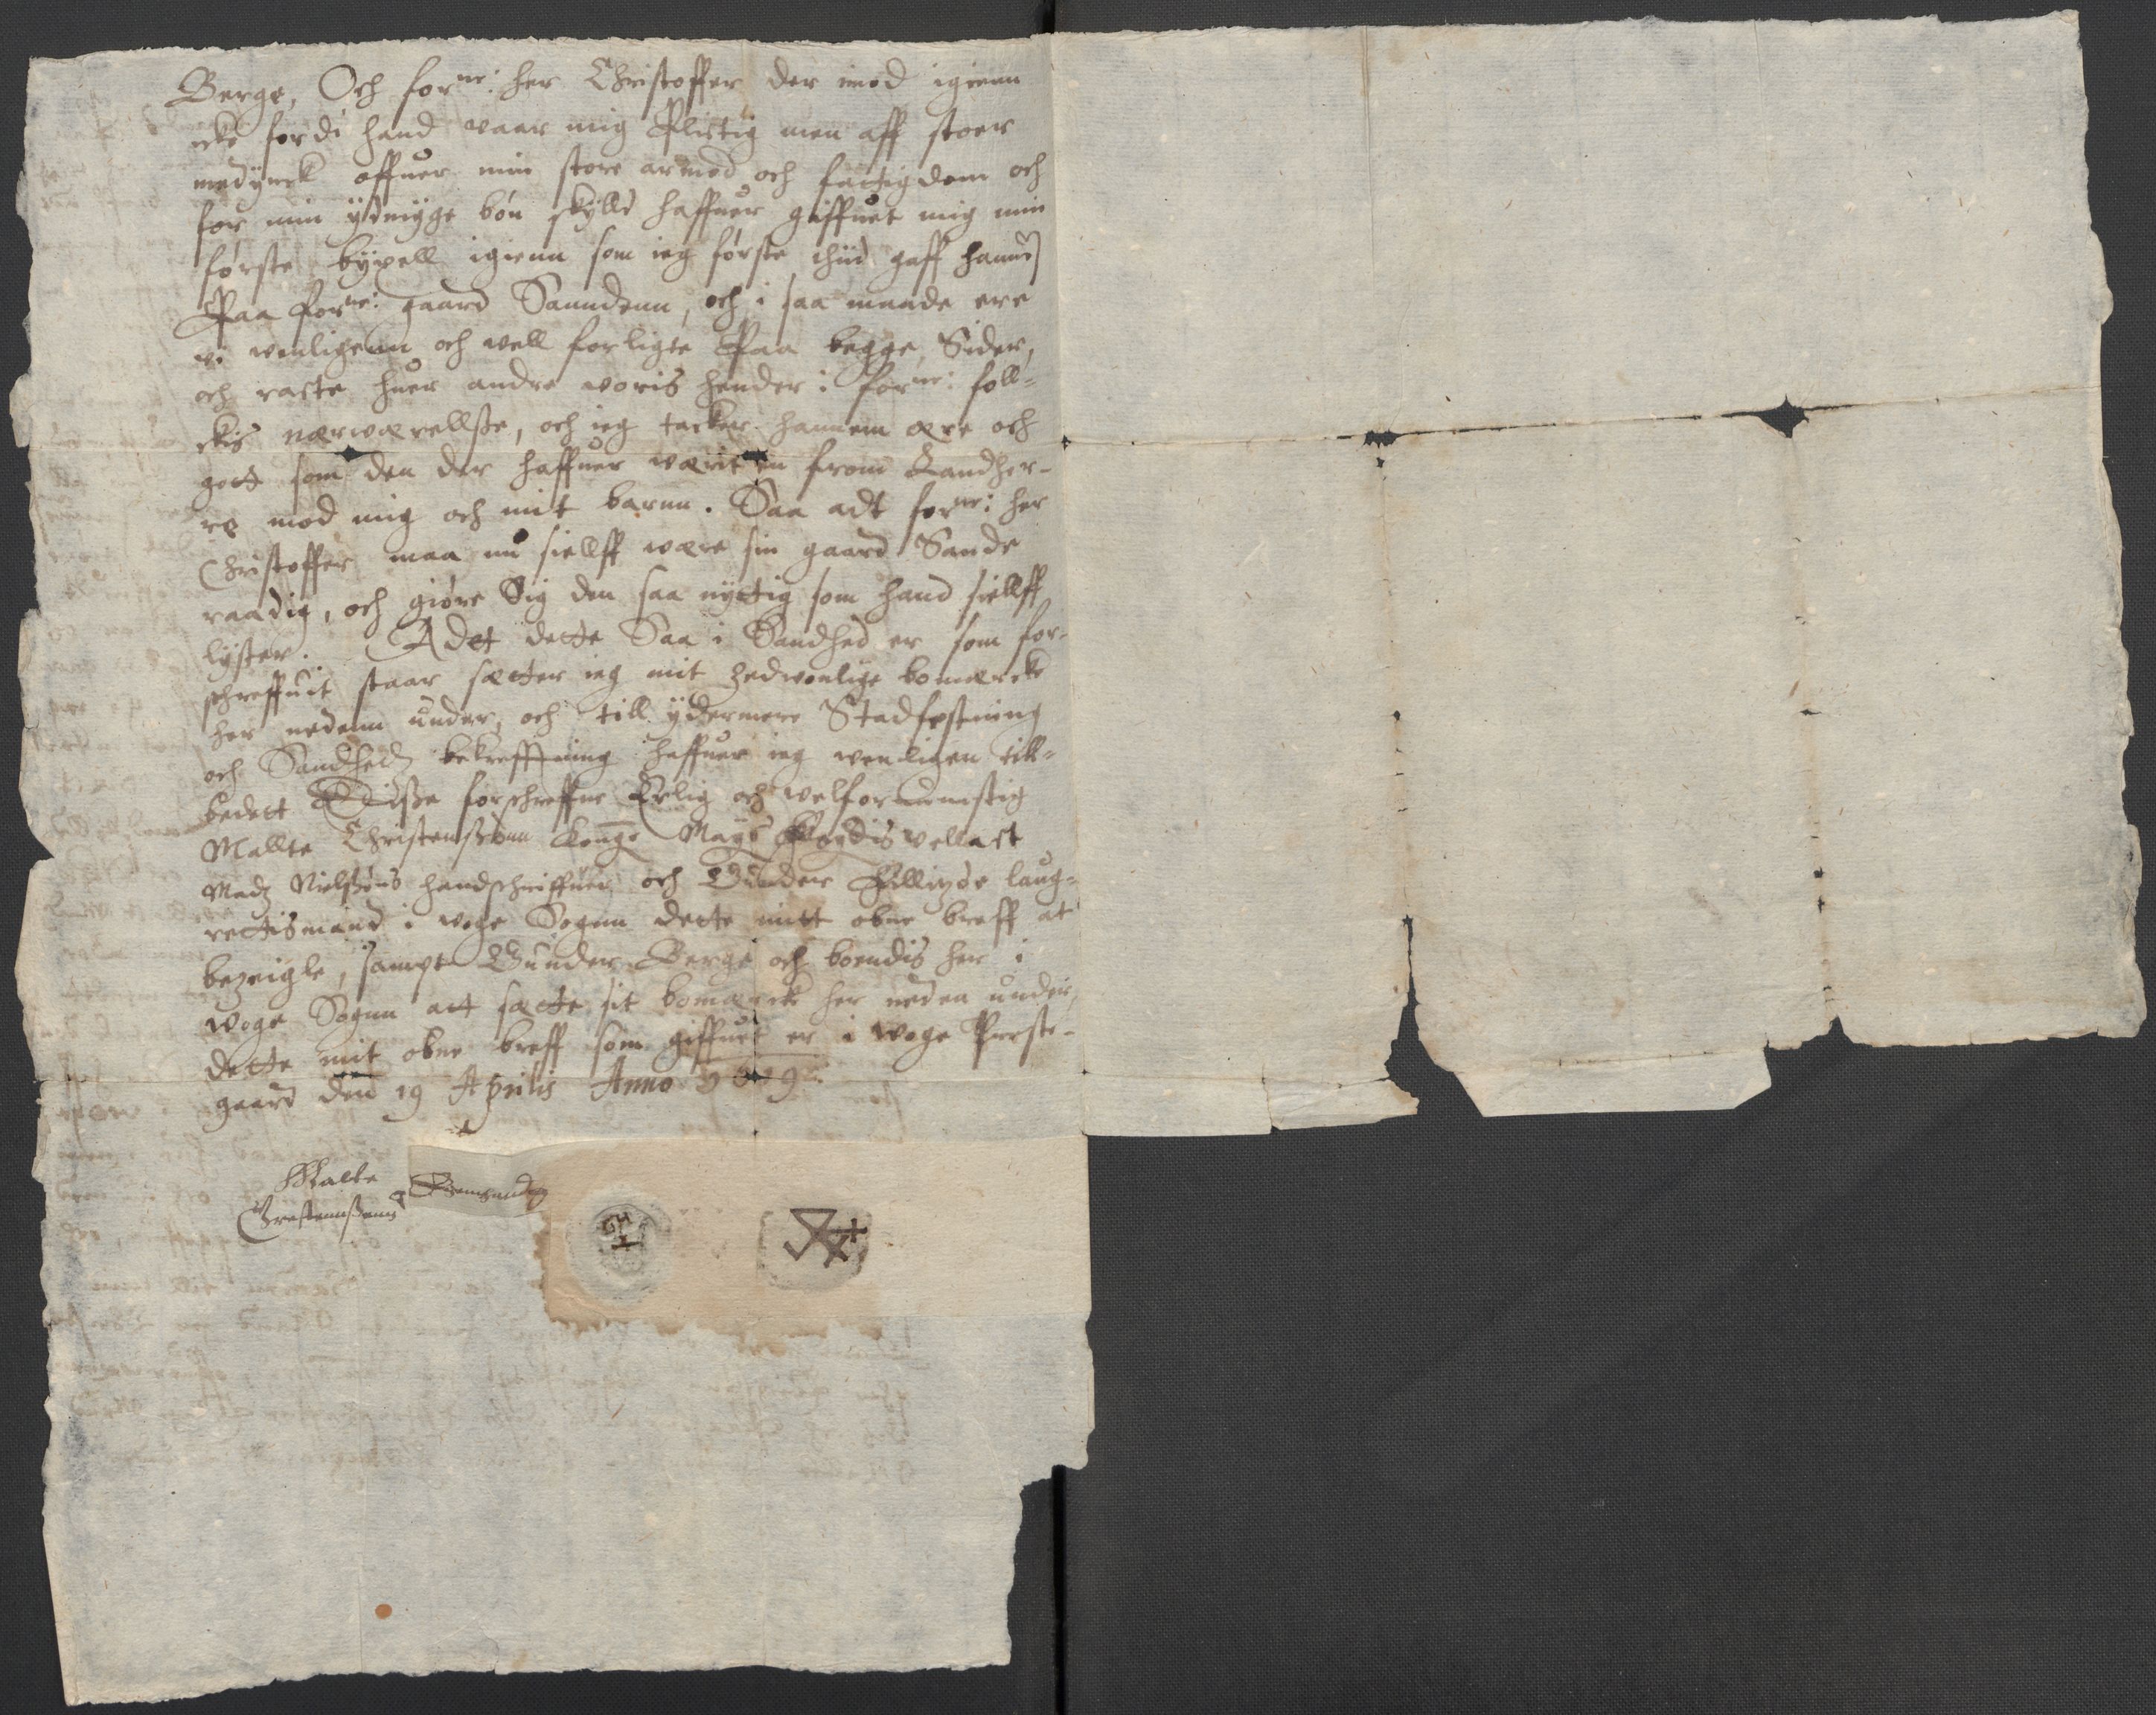 Berge, Och forne: her Christoffer der imod igienn
icke fordi hand waar mig Plictig men aff stoer
medynck offuer min store armod och fattigdom och
for min ÿdmÿge bøn skÿlld haffuer giffuet mig min
første bÿxell igienn som ieg første thiid gaff hannem
Paa forne: gaard Sanndenn, och i saa maade ere
vi wenligenn och vell forligte Paa begge Sider,
och racte huer andre woris hender i forne: foll-
ckis nærwærellsse, och ieg tacker hannem ære och
gott som den der haffuer wærit en from Landher-
re mod mig och mit barnn. Saa adt forne: her
Christoffer maa nu siellff wære sin gaard Sande
raadig, och giøre Sig den saa nyttig som hand siellff
lÿster. Adet dette Saa i Sandhed er som for-
schreffuit staar sætter ieg mit sedwonlige bomærcke
her nedenn under, och till ÿdermere Stadfestning
och Sandheds bekrefftning haffuer ieg wenligen till-
bedett Disse forschreffne Erlig och welfornumstig
Mallte Christenssønn Konge Mays
Madz Nielssøns handschriffuer och Gunder laug-
rettismand i woge Sognn dette mitt obne breff at
bezeigle, sampt Gunder Berge och boendis her i
woge Sognn att sætte sit bomærcke her neden under
dette mit obne breff som giffuet er i woge Preste-
gaard den 19 Aprilis Anno
Malte
Christennssønn
GH